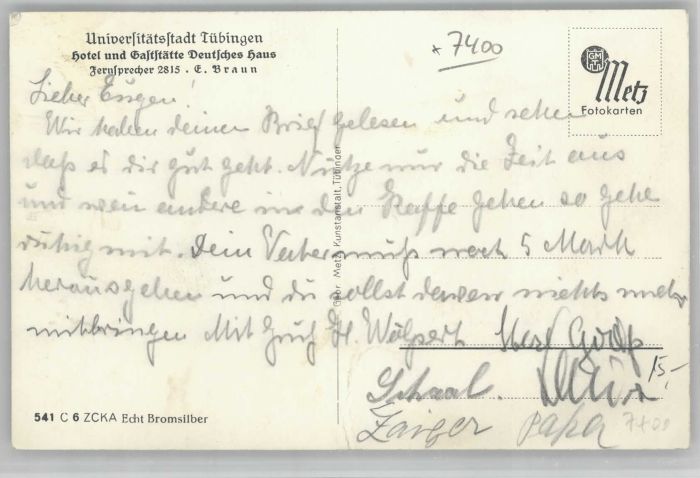 Universitätsstadt Tübingen
Hotel und Gaststätte Deutsches Haus
Fernsprecher 2815 · E. Braun
x 7400
GM
Metz
Fotokarten
Lieber Eugen!
Wir haben deinen Brief gelesen und sehen
daß es dir gut geht. Nütze nur die Zeit aus
und wenn andere in den Kaffe gehen so gehe
ruhig mit. Dein Vater muß noch 5 Mark
herausgeben und du sollst davon nichts mehr
mitbringen Mit Gruß H. Wölpert
Schaal.
15,-
Zaiger Papa 7400
Gebr. Metz, Kunstanstalt, Tübingen
541 C 6 ZCKA Echt Bromsilber